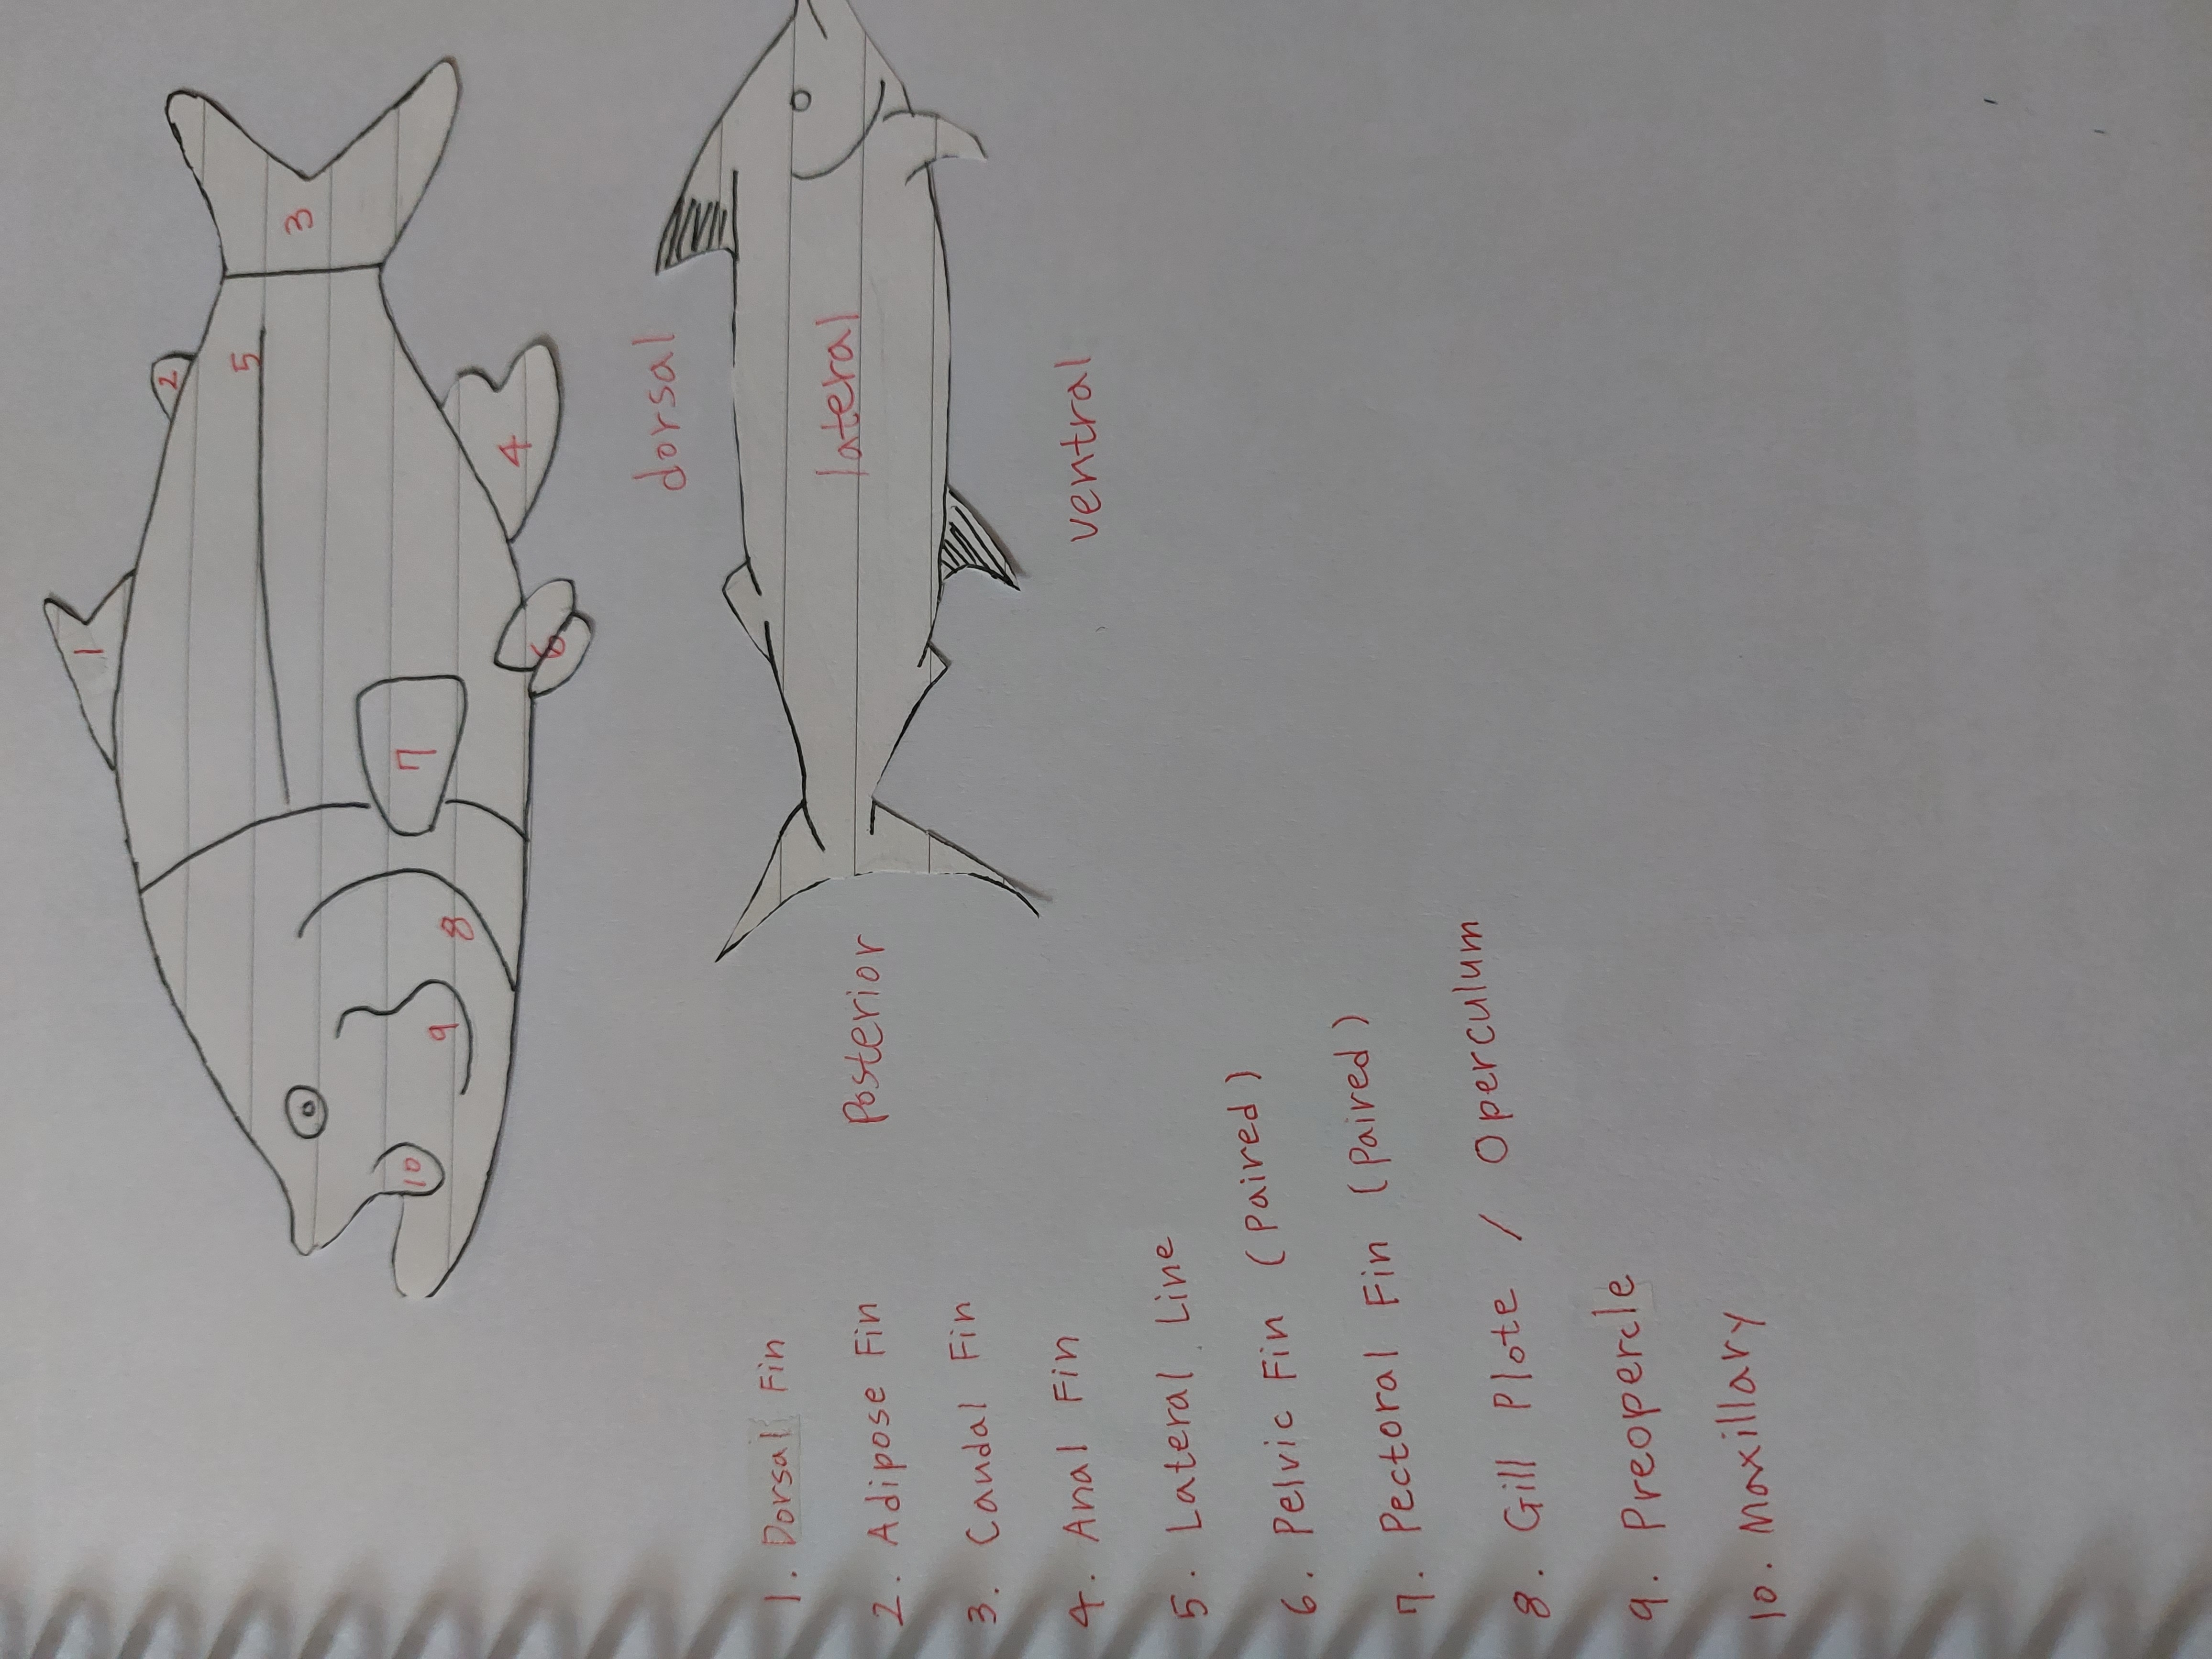 1
2
3
4
5
6
7
8
9
10
dorsal
lateral
ventral
Posterior
1. Dorsal Fin
2. Adipose Fin
3. Caudal Fin
4. Anal Fin
5. Lateral Line
6. Pelvic Fin (Paired)
7. Pectoral Fin (Paired)
8. Gill Plate / Operculum
9. Preopercle
10. Maxillary